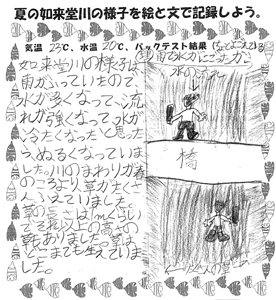 夏の如来堂川の様子を絵と文で記録しよう。
気温 23℃、水温 20℃、パックテスト結果
如来堂川の様子は、
雨がふっていたので、
水が多くなって、流
れが強くなって水が
冷たくなったと思った
ら、ぬるくなっていま
した。川のまわりが春
のころより、草がたくさ
んふえていました。
草の長さは1mくらい
でそれ以上の高さの
草もありました。草は
どこまでも生えていま
した。
水のながれ
橋